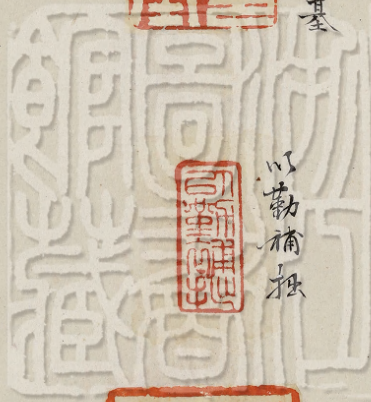 以勤補拙
以勤補拙
浙江
圖書
館藏